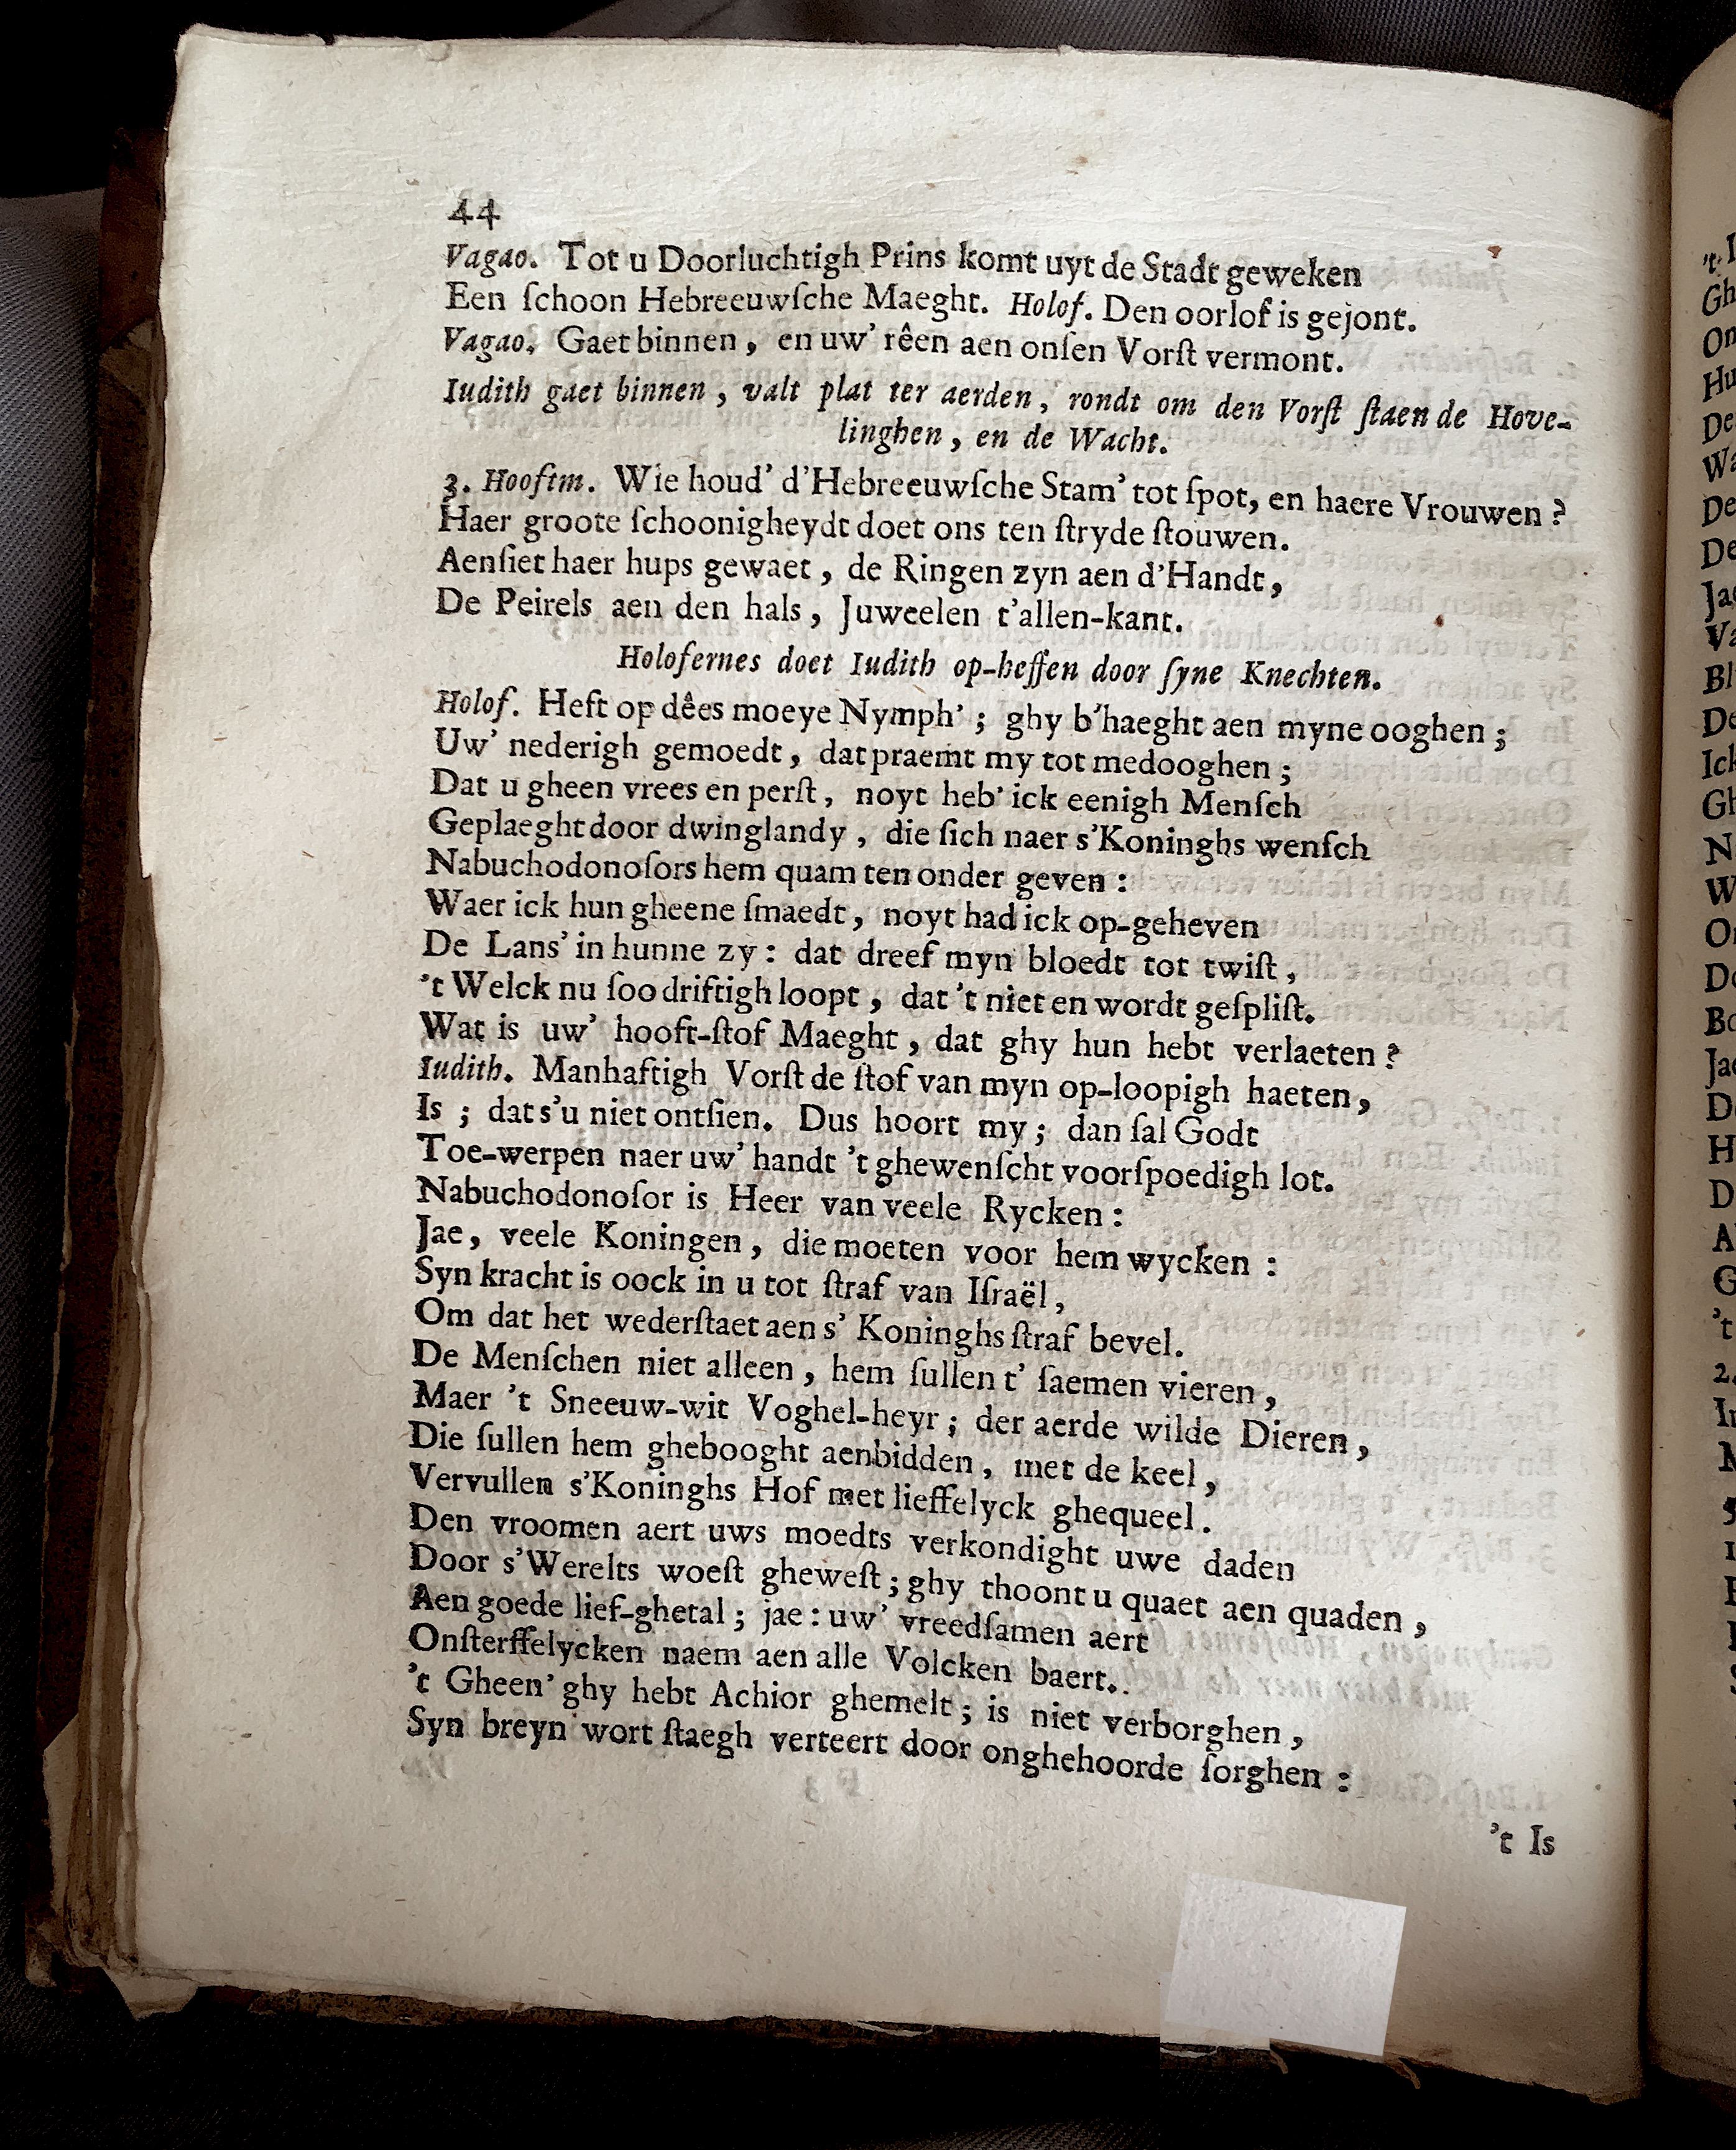 44
Vagao. Tot u Doorluchtigh Prins komt uyt de Stadt geweken
Een ſchoon Hebreeuwſche Maeght. Holof. Den oorlof is gejont.
Vagao. Gaet binnen, en uw' rêen aen onſen Vorſt vermont.
Iudith gaet binnen, valt plat ter aerden, rondt om den Vorſt ſtaen de Hove-
linghen, en de Wacht.
3. Hooftm. Wie houd' d'Hebreeuwſche Stam' tot ſpot, en haere Vrouwen?
Haer groote ſchoonigheydt doet ons ten ſtryde ſtouwen.
Aenſiet haer hups gewaet, de Ringen zyn aen d'Handt,
De Peirels aen den hals, Juweelen t'allen-kant.
Holofernes doet Iudith op-heffen door ſyne Knechten.
Holof. Heft op dêes moeye Nymph'; ghy b'haeght aen myne ooghen;
Uw' nederigh gemoedt, dat praemt my tot medooghen;
Dat u gheen vrees en perſt, noyt heb' ick eenigh Menſch
Geplaeght door dwinglandy, die ſich naer s'Koninghs wenſch
Nabuchodonoſors hem quam ten onder geven:
Waer ick hun gheene ſmaedt, noyt had ick op-geheven
De Lans' in hunne zy: dat dreef myn bloedt tot twiſt,
't Welck nu ſoo driftigh loopt, dat 't niet en wordt geſpliſt.
Wat is uw' hooft-ſtof Maeght, dat ghy hun hebt verlaeten?
Iudith. Manhaftigh Vorſt de ſtof van myn op-loopigh haeten,
Is; dat s'u niet ontſien. Dus hoort my; dan ſal Godt
Toe-werpen naer uw' handt 't ghewenſcht voorſpoedigh lot.
Nabuchodonoſor is Heer van veele Rycken:
Jae, veele Koningen, die moeten voor hem wycken:
Syn kracht is oock in u tot ſtraf van Iſraël,
Om dat het wederſtaet aen s' Koninghs ſtraf bevel.
De Menſchen niet alleen, hem ſullen t' ſaemen vieren,
Maer 't Sneeuw-wit Voghel-heyr; der aerde wilde Dieren,
Die ſullen hem ghebooght aenbidden, met de keel,
Vervullen s'Koninghs Hof met lieffelyck ghequeel.
Den vroomen aert uws moedts verkondight uwe daden
Door s'Werelts woeſt gheweſt; ghy thoont u quaet aen quaden,
Aen goede lief-ghetal; jae: uw' vreedſamen aert
Onſterffelycken naem aen alle Volcken baert.
't Gheen' ghy hebt Achior ghemelt; is niet verborghen,
Syn breyn wort ſtaegh verteert door onghehoorde ſorghen:
't Is